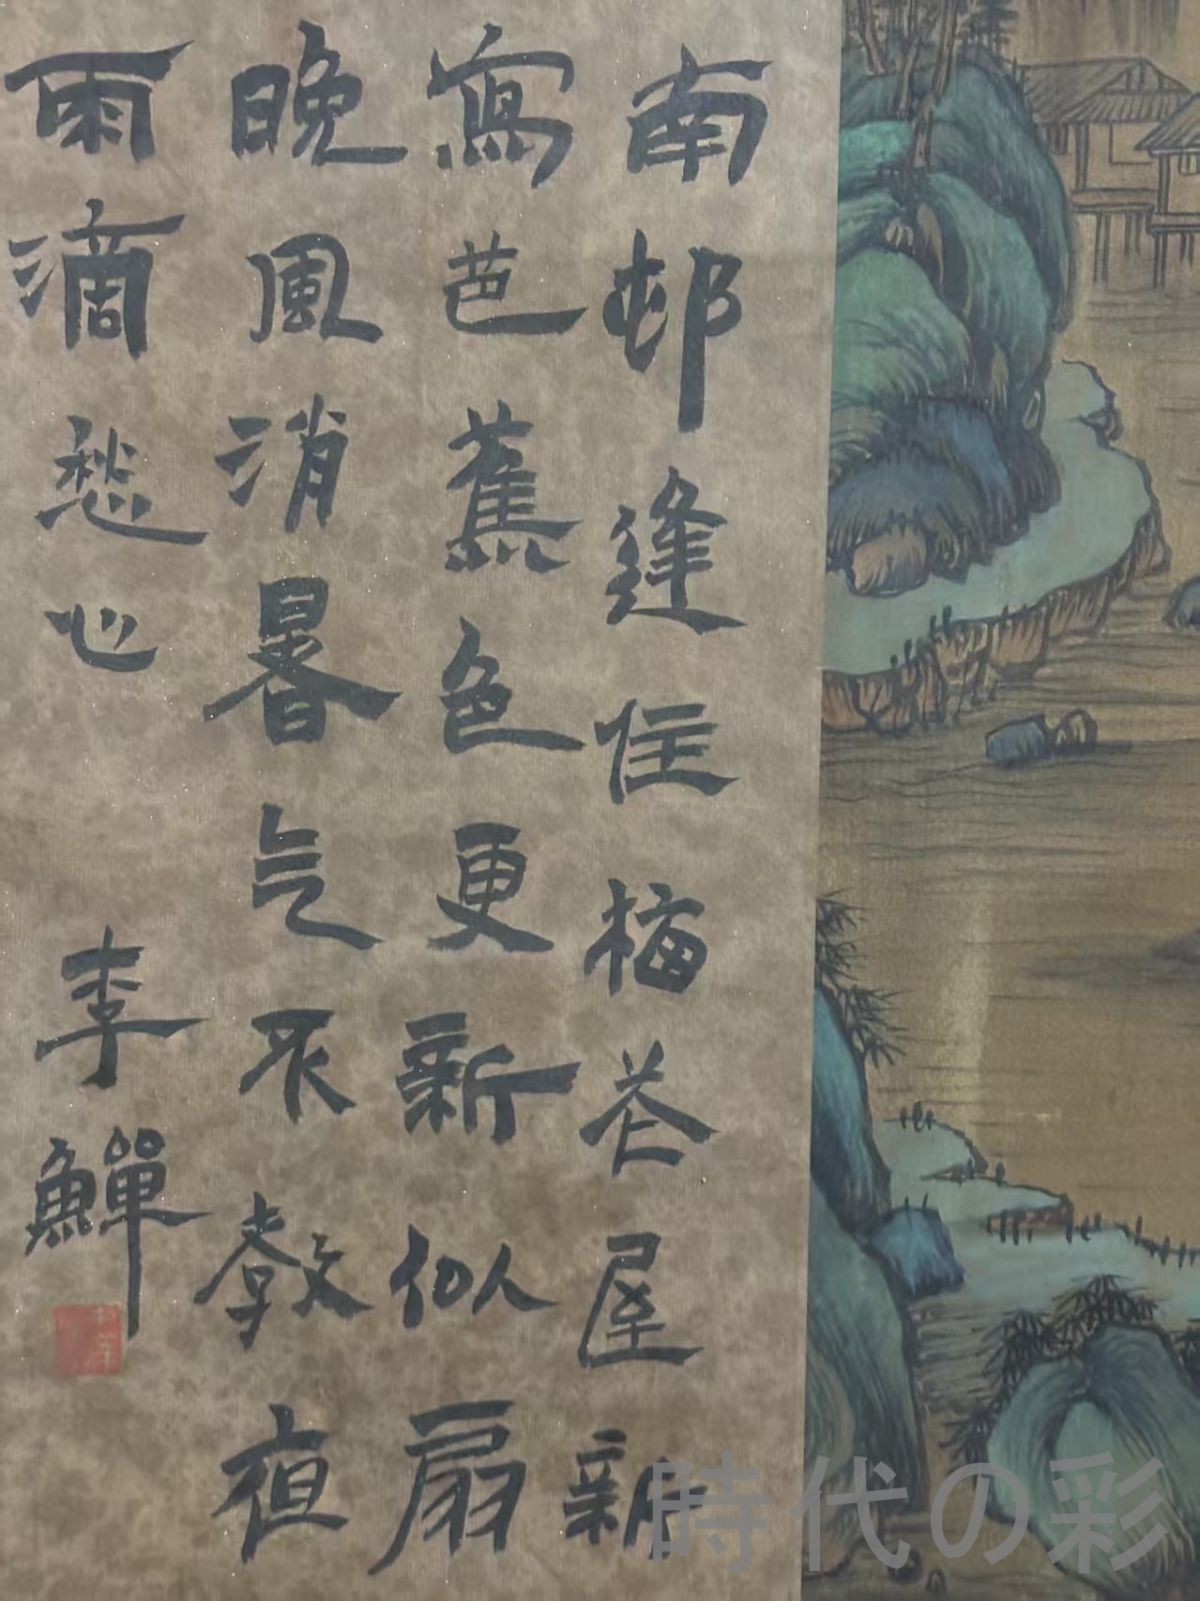 南邨逢住梅花屋新
寫芭蕉色更新似扇
晚風消暑气不教夜
雨滴愁心
李鱓
時代の彩